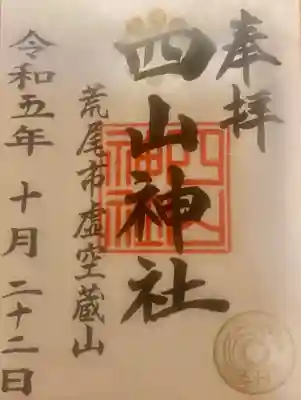 奉拝
四山神社
荒尾市虚空蔵山
令和五年 十月 二十二日